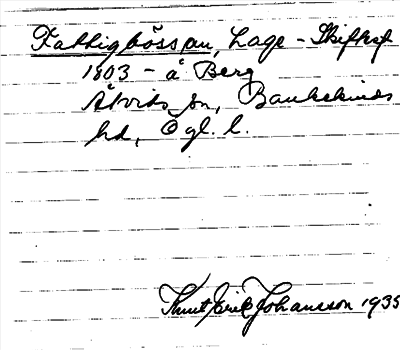 Fattigbössan, Lage-Skifket
1803 - å Berg
Åtvids sn, Bankekinds
hd, Ögl. l.
Knut Erik Johansson 1935